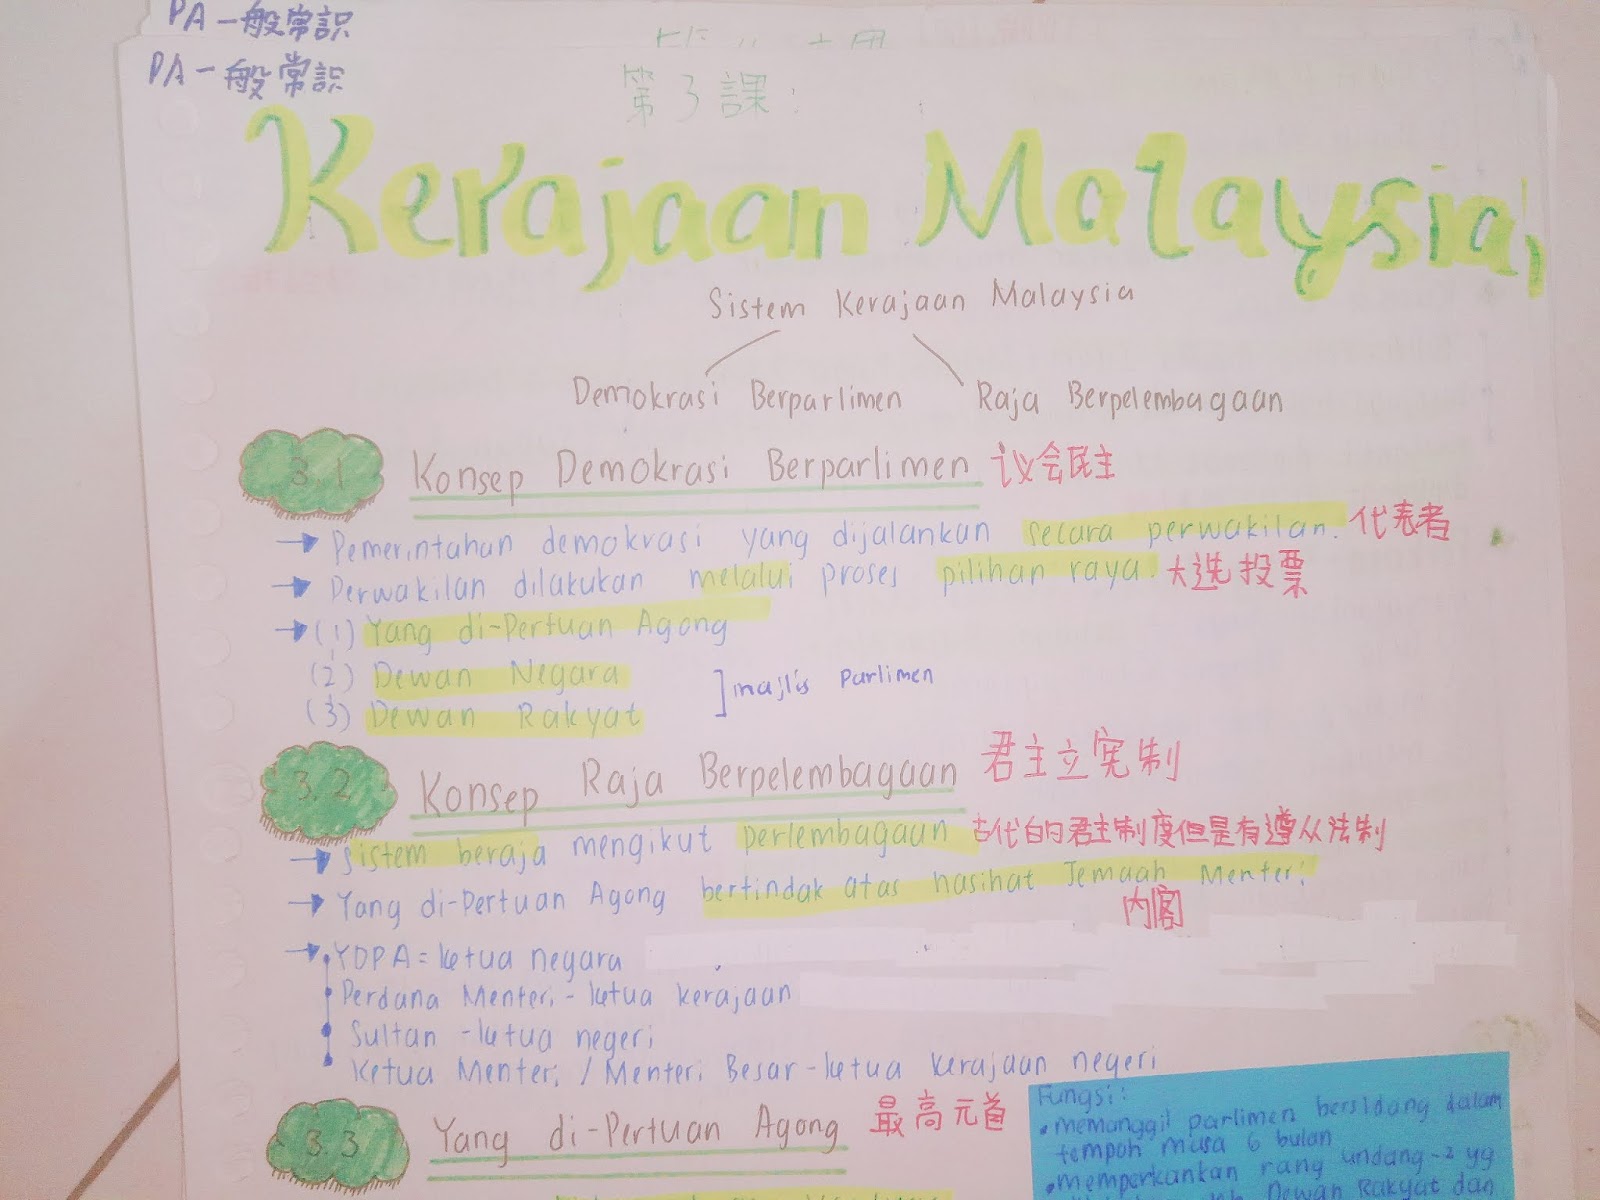 PA 一般常识
PA 一般常识
第3課:
Kerajaan Malaysia
Sistem Kerajaan Malaysia
Demokrasi Berparlimen Raja Berpelembagaan
3.1 Konsep Demokrasi Berparlimen 议会民主
→ Pemerintahan demokrasi yang dijalankan secara perwakilan. 代表者
→ Perwakilan dilakukan melalui proses pilihan raya. 大选投票
→ (1) Yang di-Pertuan Agong
(2) Dewan Negara
] majlis Parlimen
(3) Dewan Rakyat
3.2 Konsep Raja Berpelembagaan 君主立宪制
→ Sistem beraja mengikut perlembagaan 古代的君主制度但是有遵从法制
→ Yang di-Pertuan Agong bertindak atas nasihat Jemaah Menteri
内阁
→ YDPA = ketua negara
• Perdana Menteri - ketua kerajaan
• Sultan - ketua negeri
• Ketua Menteri / Menteri Besar - ketua kerajaan negeri
3.3 Yang di-Pertuan Agong 最高元首
Fungsi:
• memanggil parlimen bersidang dalam
tempoh masa 6 bulan
• memperkankan rang undang-2 yg
Dewan Rakyat dan